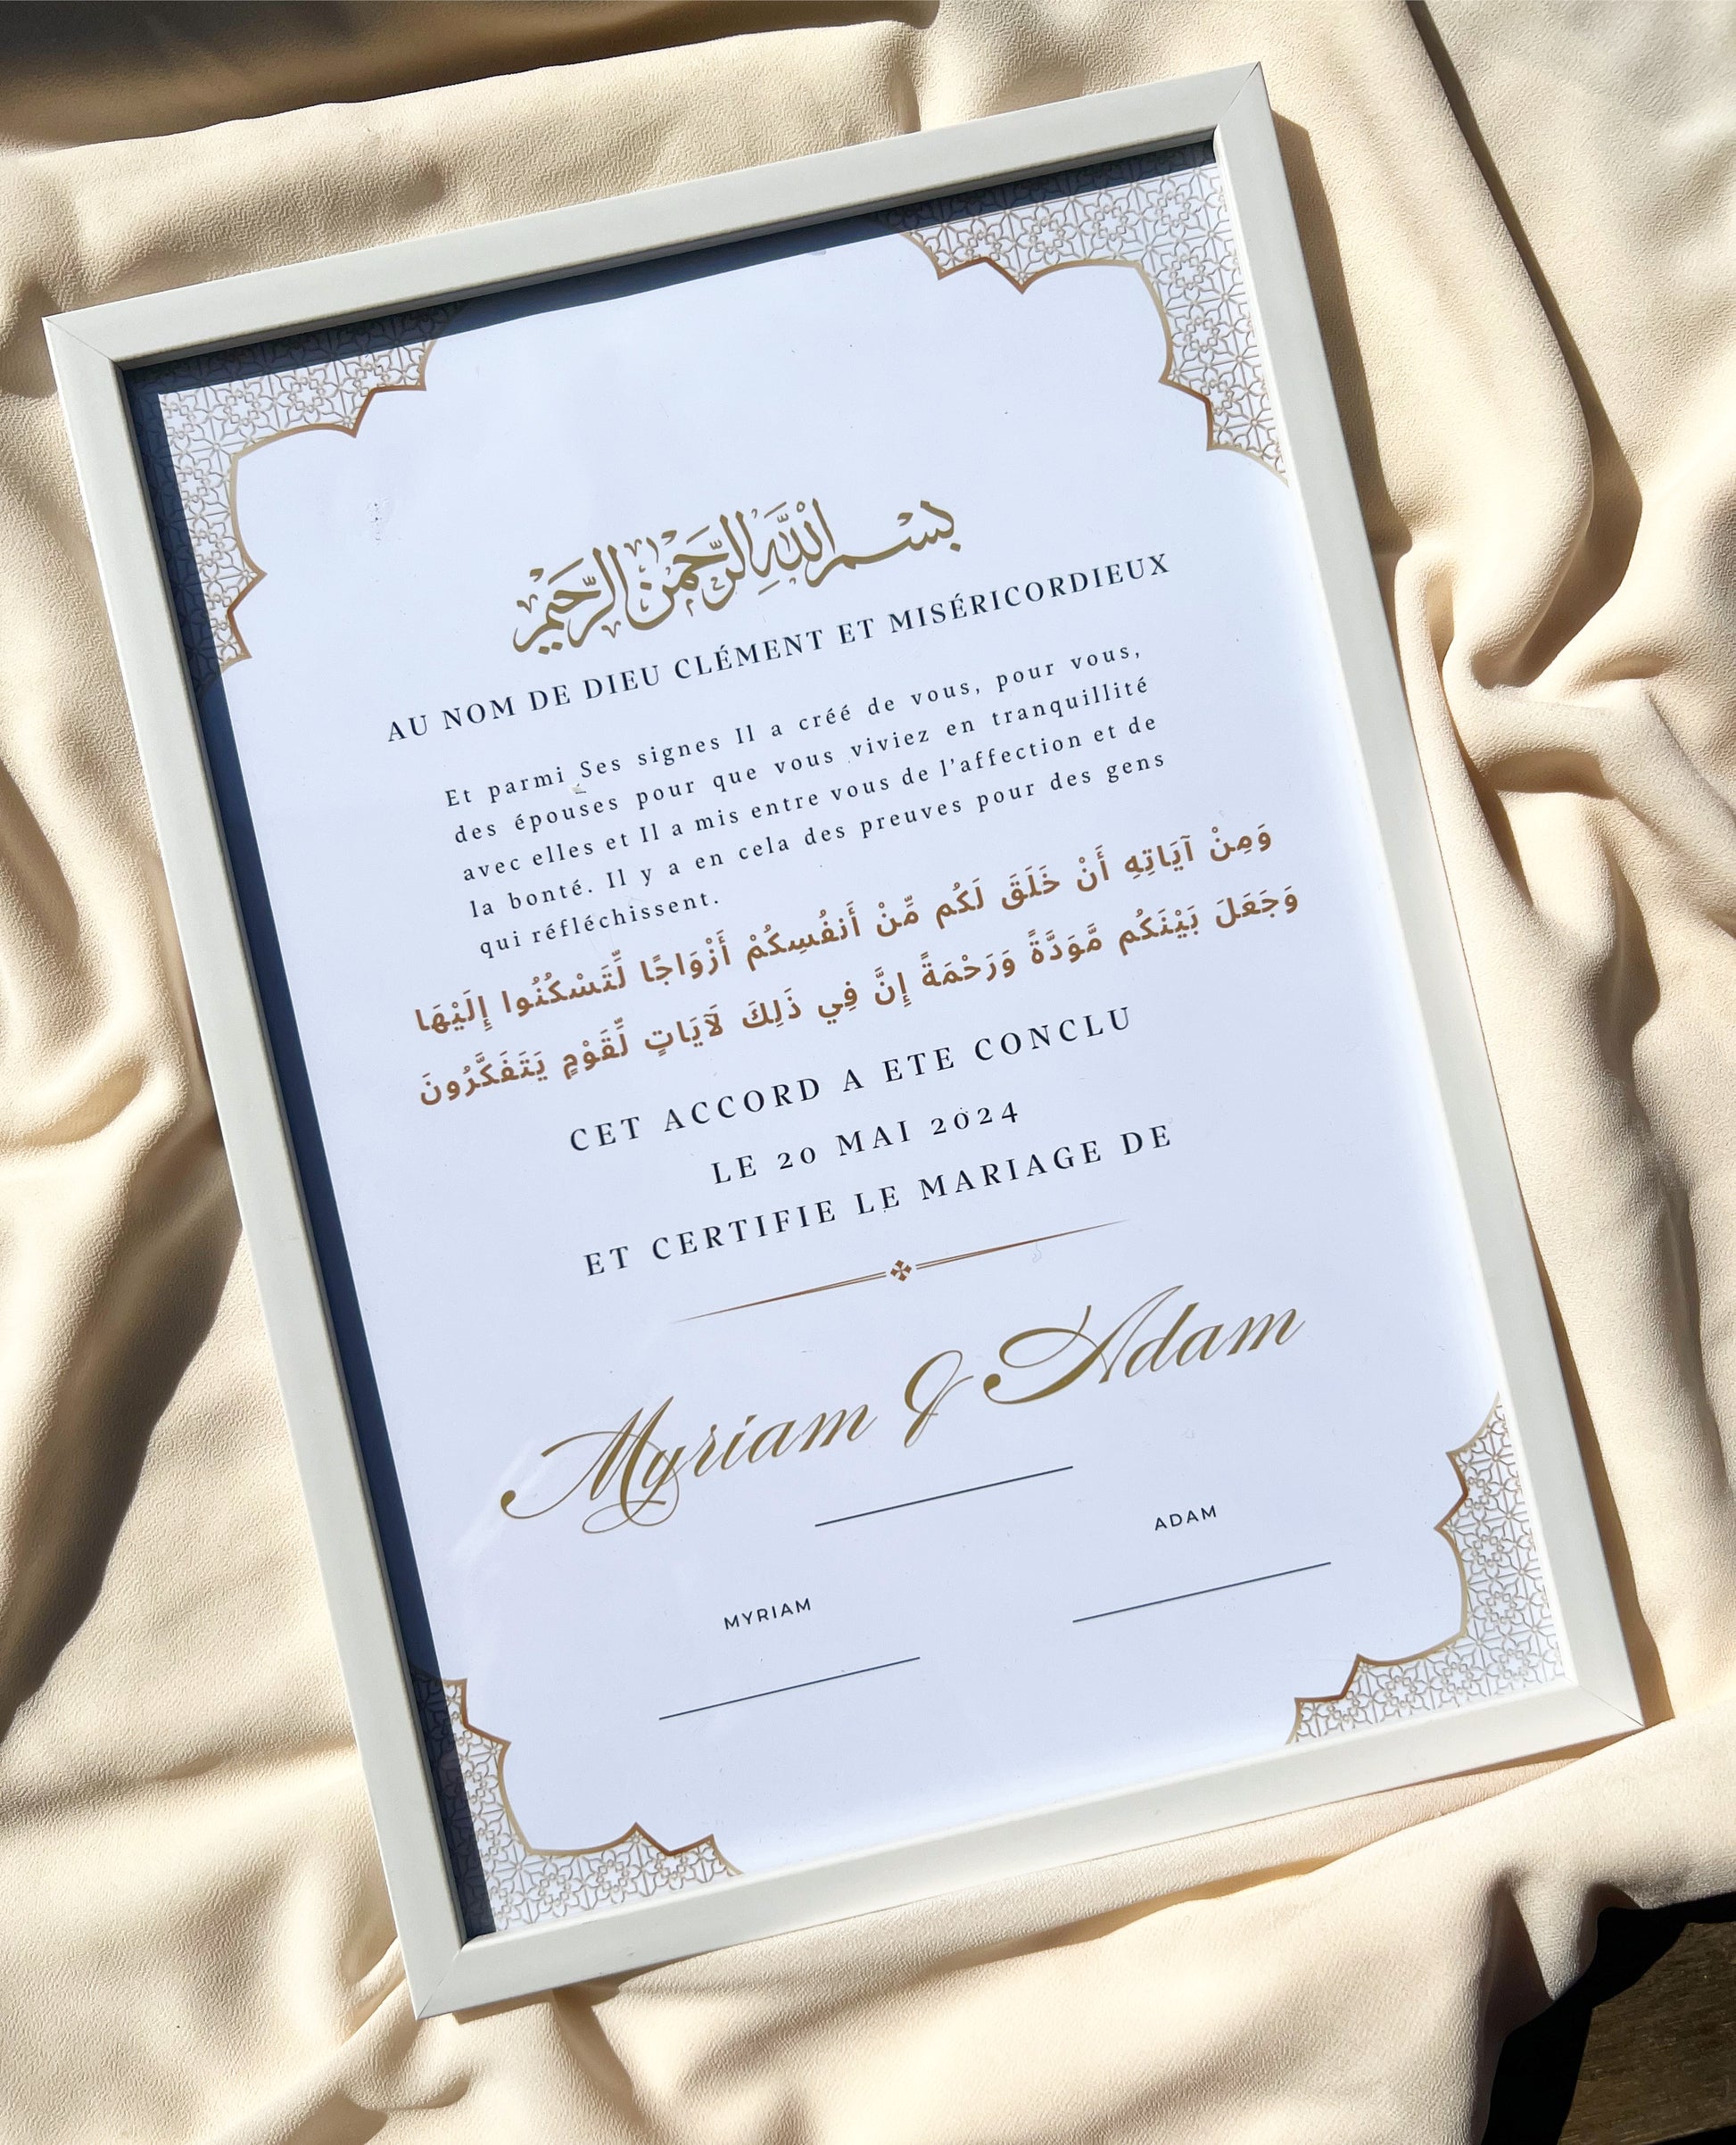 بِسْمِ اللَّهِ الرَّحْمٰنِ الرَّحِيمِ
AU NOM DE DIEU CLÉMENT ET MISÉRICORDIEUX
Et parmi Ses signes Il a créé de vous, pour vous,
des épouses pour que vous viviez en tranquillité
avec elles et Il a mis entre vous de l'affection et de
la bonté. Il y a en cela des preuves pour des gens
qui réfléchissent.
وَمِنْ آيَاتِهِ أَنْ خَلَقَ لَكُم مِّنْ أَنفُسِكُمْ أَزْوَاجًا لِّتَسْكُنُوا إِلَيْهَا
وَجَعَلَ بَيْنَكُم مَّوَدَّةً وَرَحْمَةً إِنَّ فِي ذَلِكَ لَآيَاتٍ لِّقَوْمٍ يَتَفَكَّرُونَ
CET ACCORD A ETE CONCLU
LE 20 MAI 2024
ET CERTIFIE LE MARIAGE DE
Myriam & Adam
MYRIAM
ADAM